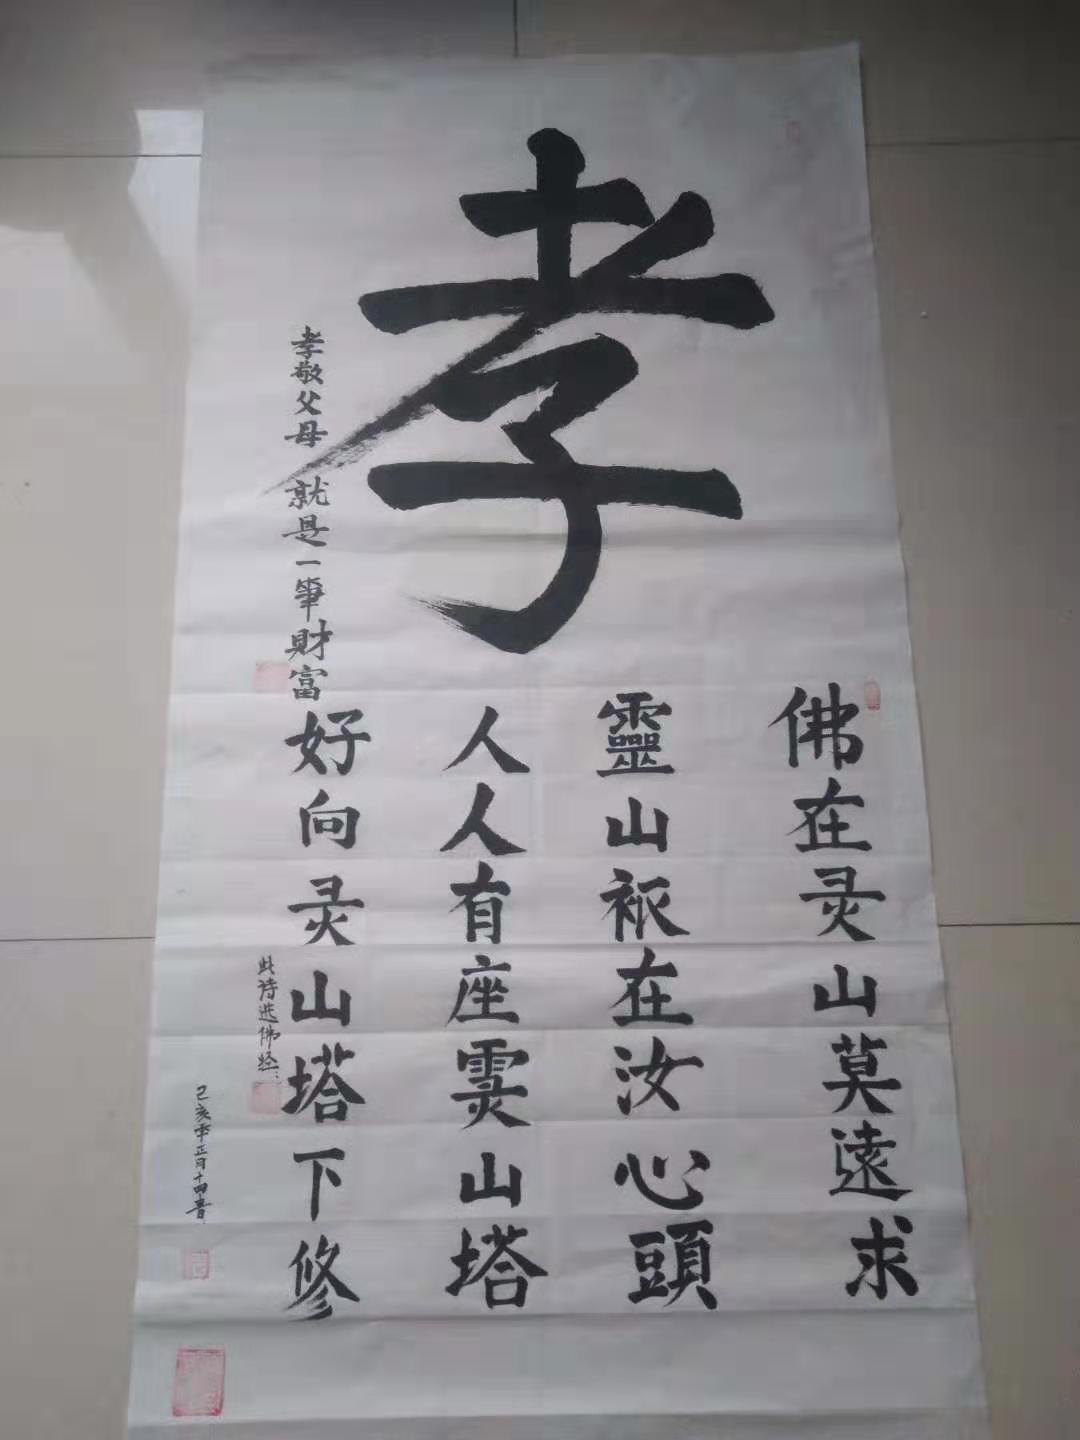 孝
佛在灵山莫遠求
靈山祇在汝心頭
人人有座霊山塔
好向灵山塔下修
孝敬父母 就是一筆財富
此诗选佛经
己亥年正月十四書